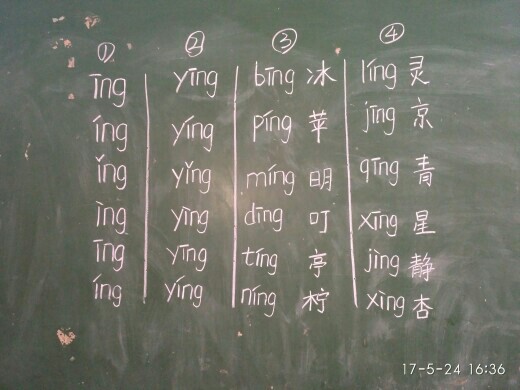 ① ② ③ ④
īng yīng bīng 冰 líng 灵
íng yíng píng 苹 jīng 京
ǐng yǐng míng 明 qīng 青
ìng yìng dīng 叮 xīng 星
īng yīng tíng 亭 jìng 静
íng yíng níng 柠 xìng 杏
17-5-24 16:36